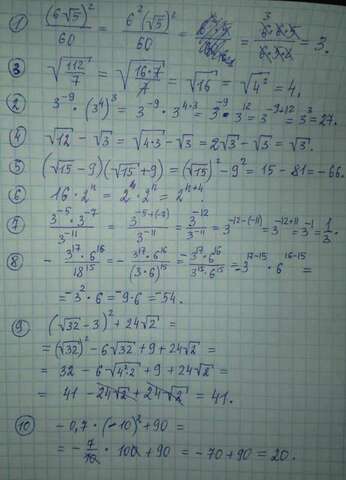 ① (6√5)²/60 = 6²(√5)²/60 = = 6·6·5/6·5·2 = 3.
③ √112/7 = √16·7/7 = √16 = √4² = 4,
② 3⁻⁹ · (3⁴)³ = 3⁻⁹ · 3⁴·³ = 3⁻⁹ · 3¹² = 3⁻⁹⁺¹² = 3³ = 27.
④ √12 − √3 = √4·3 − √3 = 2√3 − √3 = √3.
⑤ (√15 − 9)(√15 + 9) = (√15)² − 9² = 15 − 81 = −66.
⑥ 16 · 2ⁿ = 2⁴ · 2ⁿ = 2ⁿ⁺⁴.
⑦ 3⁻⁵ · 3⁻⁷/3⁻¹¹ = 3⁻⁵⁺⁽⁻⁷⁾/3⁻¹¹ = 3⁻¹²/3⁻¹¹ = 3⁻¹²⁻⁽⁻¹¹⁾ = 3⁻¹²⁺¹¹ = 3⁻¹ = 1/3.
⑧ − 3¹⁷ · 6¹⁶/18¹⁵ = − 3¹⁷ · 6¹⁶/(3·6)¹⁵ = − 3¹⁷ · 6¹⁶/3¹⁵ · 6¹⁵ = −3¹⁷⁻¹⁵ · 6¹⁶⁻¹⁵ =
= −3² · 6 = −9 · 6 = −54.
⑨ (√32 − 3)² + 24√2 =
= (√32)² − 6√32 + 9 + 24√2 =
= 32 − 6√4²·2 + 9 + 24√2 =
= 41 − 24√2 + 24√2 = 41.
⑩ −0,7 · (−10)² + 90 =
= −7/10 · 100 + 90 = −70 + 90 = 20.